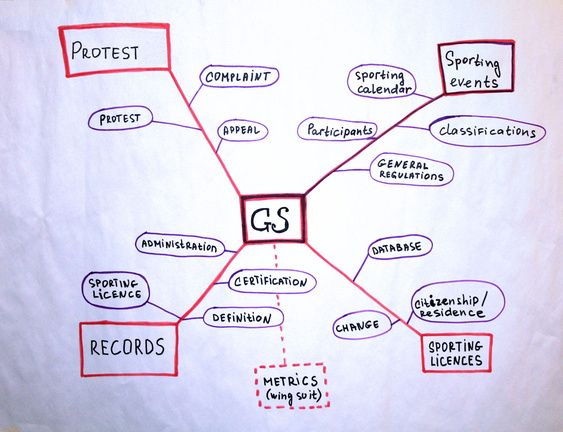 PROTEST
COMPLAINT
PROTEST
APPEAL
Sporting
events
Sporting
calendar
Participants
classifications
GENERAL
REGULATIONS
GS
ADMINISTRATION
SPORTING
LICENCE
CERTIFICATION
DEFINITION
RECORDS
DATABASE
citizenship/
residence
CHANGE
SPORTING
LICENCES
METRICS
(wing suit)